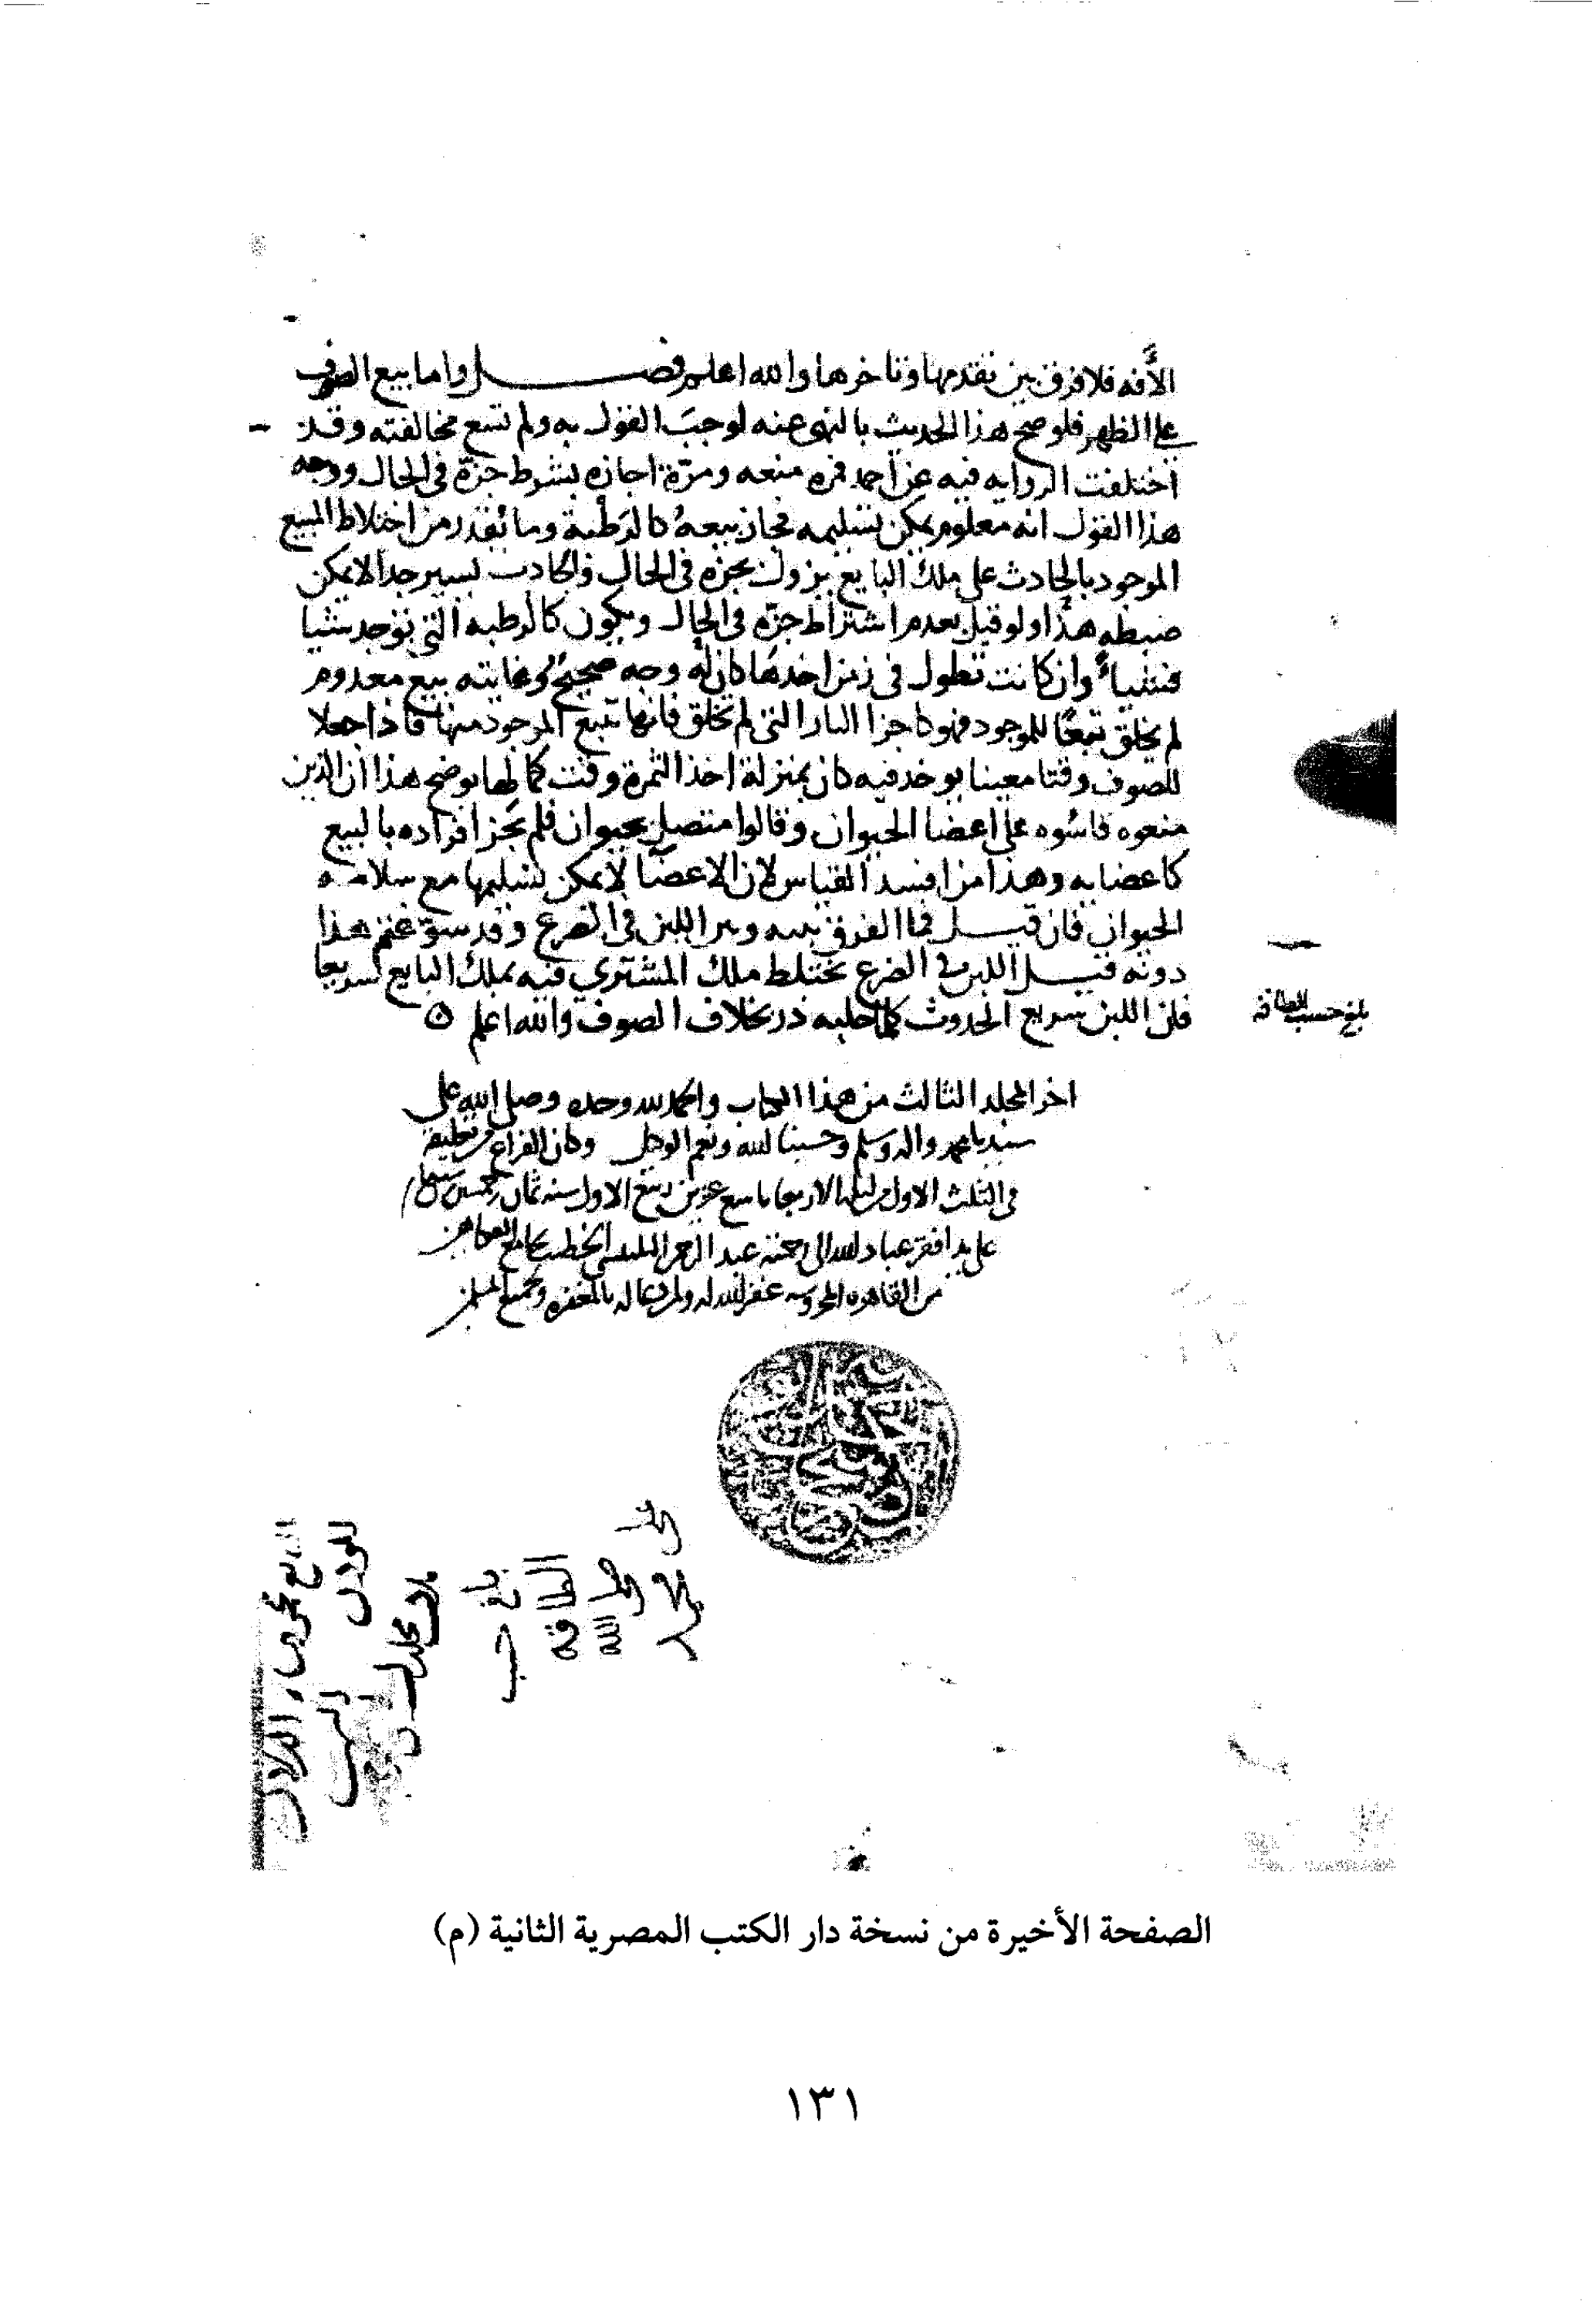 الآفه فلا فرق بين تقدمها وتاخرها والله اعلم فصل واما بيع الصوف
على الظهر فلو صح هذا الحديث بالنهي عنه لوجب القول به ولم تسع مخالفته وقد
اختلفت الروايه فيه عن احمد فمره منعه ومرة اجازه بشرط جزه في الحال ووجه
هذا القول انه معلوم يمكن تسليمه فجاز بيعه كالرطبة وما يقدر من اختلاط المبيع
الموجود بالحادث على ملك البايع يزول بجزه في الحال والحادث يسير جدا لا يمكن
ضبطه هذا ولو قيل بعدم اشتراط جزه في الحال ويكون كالرطبه التي توخد شيا
فشيا وان كانت تطول في زمن اخذها كان له وجه صحيح وغايته بيع معدوم
لم يخلق تبعا للموجود فهو كاجزا الثمار التي لم تخلق فانها تتبع الموجود منها فاذا جعلا
للصوف وقتا معينا يوخذ فيه كان بمنزلة اخذ الثمرة وقت كمالها يوضح هذا ان الذين
منعوه قاسوه على اعضا الحيوان وقالوا متصل بحيوان فلم يجز افراده بالبيع
كاعضايه وهذا من افسد القياس لان الاعضا لا يمكن تسليمها مع سلامة
الحيوان فان قيل فما الفرق بينه وبين اللبن في الضرع وقد سوغتم هذا
دونه قيل اللبن في الضرع يختلط ملك المشتري فيه بملك البايع سريعا
فان اللبن سريع الحدوث كلما حلبه در بخلاف الصوف والله اعلم
بلغ
اخر المجلد الثالث من هذا الكتاب والحمد لله وحده وصلى الله على
سيدنا محمد واله وسلم وحسبنا الله ونعم الوكيل وكان الفراغ من تعليقه
في الثلث الاول من ليلة الاربعا تاسع عشرين ربيع الاول سنه ثمان وخمسين
على يد افقر عباد الله الى رحمته عبد الرحمن الخطيب بجامع
من القاهره المحروسه غفر الله له ولمن دعا له بالمغفره ولجميع المسلمين
الصفحة الأخيرة من نسخة دار الكتب المصرية الثانية (م)
١٣١